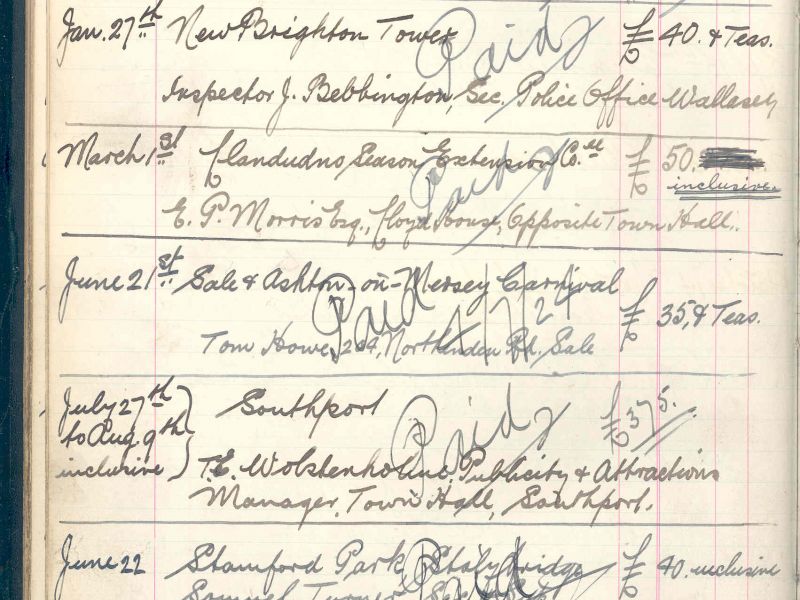 Jan. 27th New Brighton Tower £40. & Teas.
Paid
Inspector J. Bebbington, Sec. Police Office Wallasey
March 1st Llandudno Season Extension Co. £50.
inclusive.
Paid
E. P. Morris Esq., Lloyd House, Opposite Town Hall.
June 21st Sale & Ashton-on-Mersey Carnival £35, & Teas.
Paid
Tom Howe, 264, Northenden Rd. Sale
July 27th Southport £375.
to Aug. 9th
inclusive
Paid
T. E. Wolstenholme, Publicity & Attractions
Manager, Town Hall, Southport.
June 22 Stamford Park Stalybridge £40. inclusive
Paid
Samuel Turner